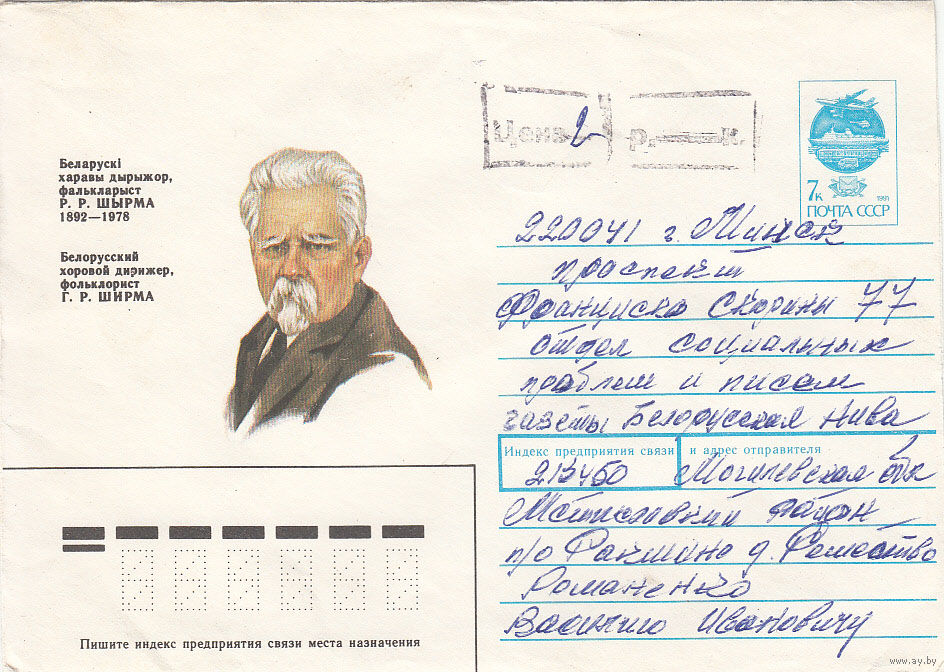 Беларускі
харавы дырыжор,
фалькларыст
Р. Р. ШЫРМА
1892—1978
Белорусский
хоровой дирижер,
фольклорист
Г. Р. ШИРМА
Цена 2 р. к.
7к
1991
ПОЧТА СССР
220041 г. Минск
проспект
Франциска Скорины 77
отдел социальных
проблем и писем
газеты Белорусская Нива
Индекс предприятия связи и адрес отправителя
213450 Могилевская обл
район
п/о д.
Романенко
Василию Ивановичу
Пишите индекс предприятия связи места назначения
www.ay.by